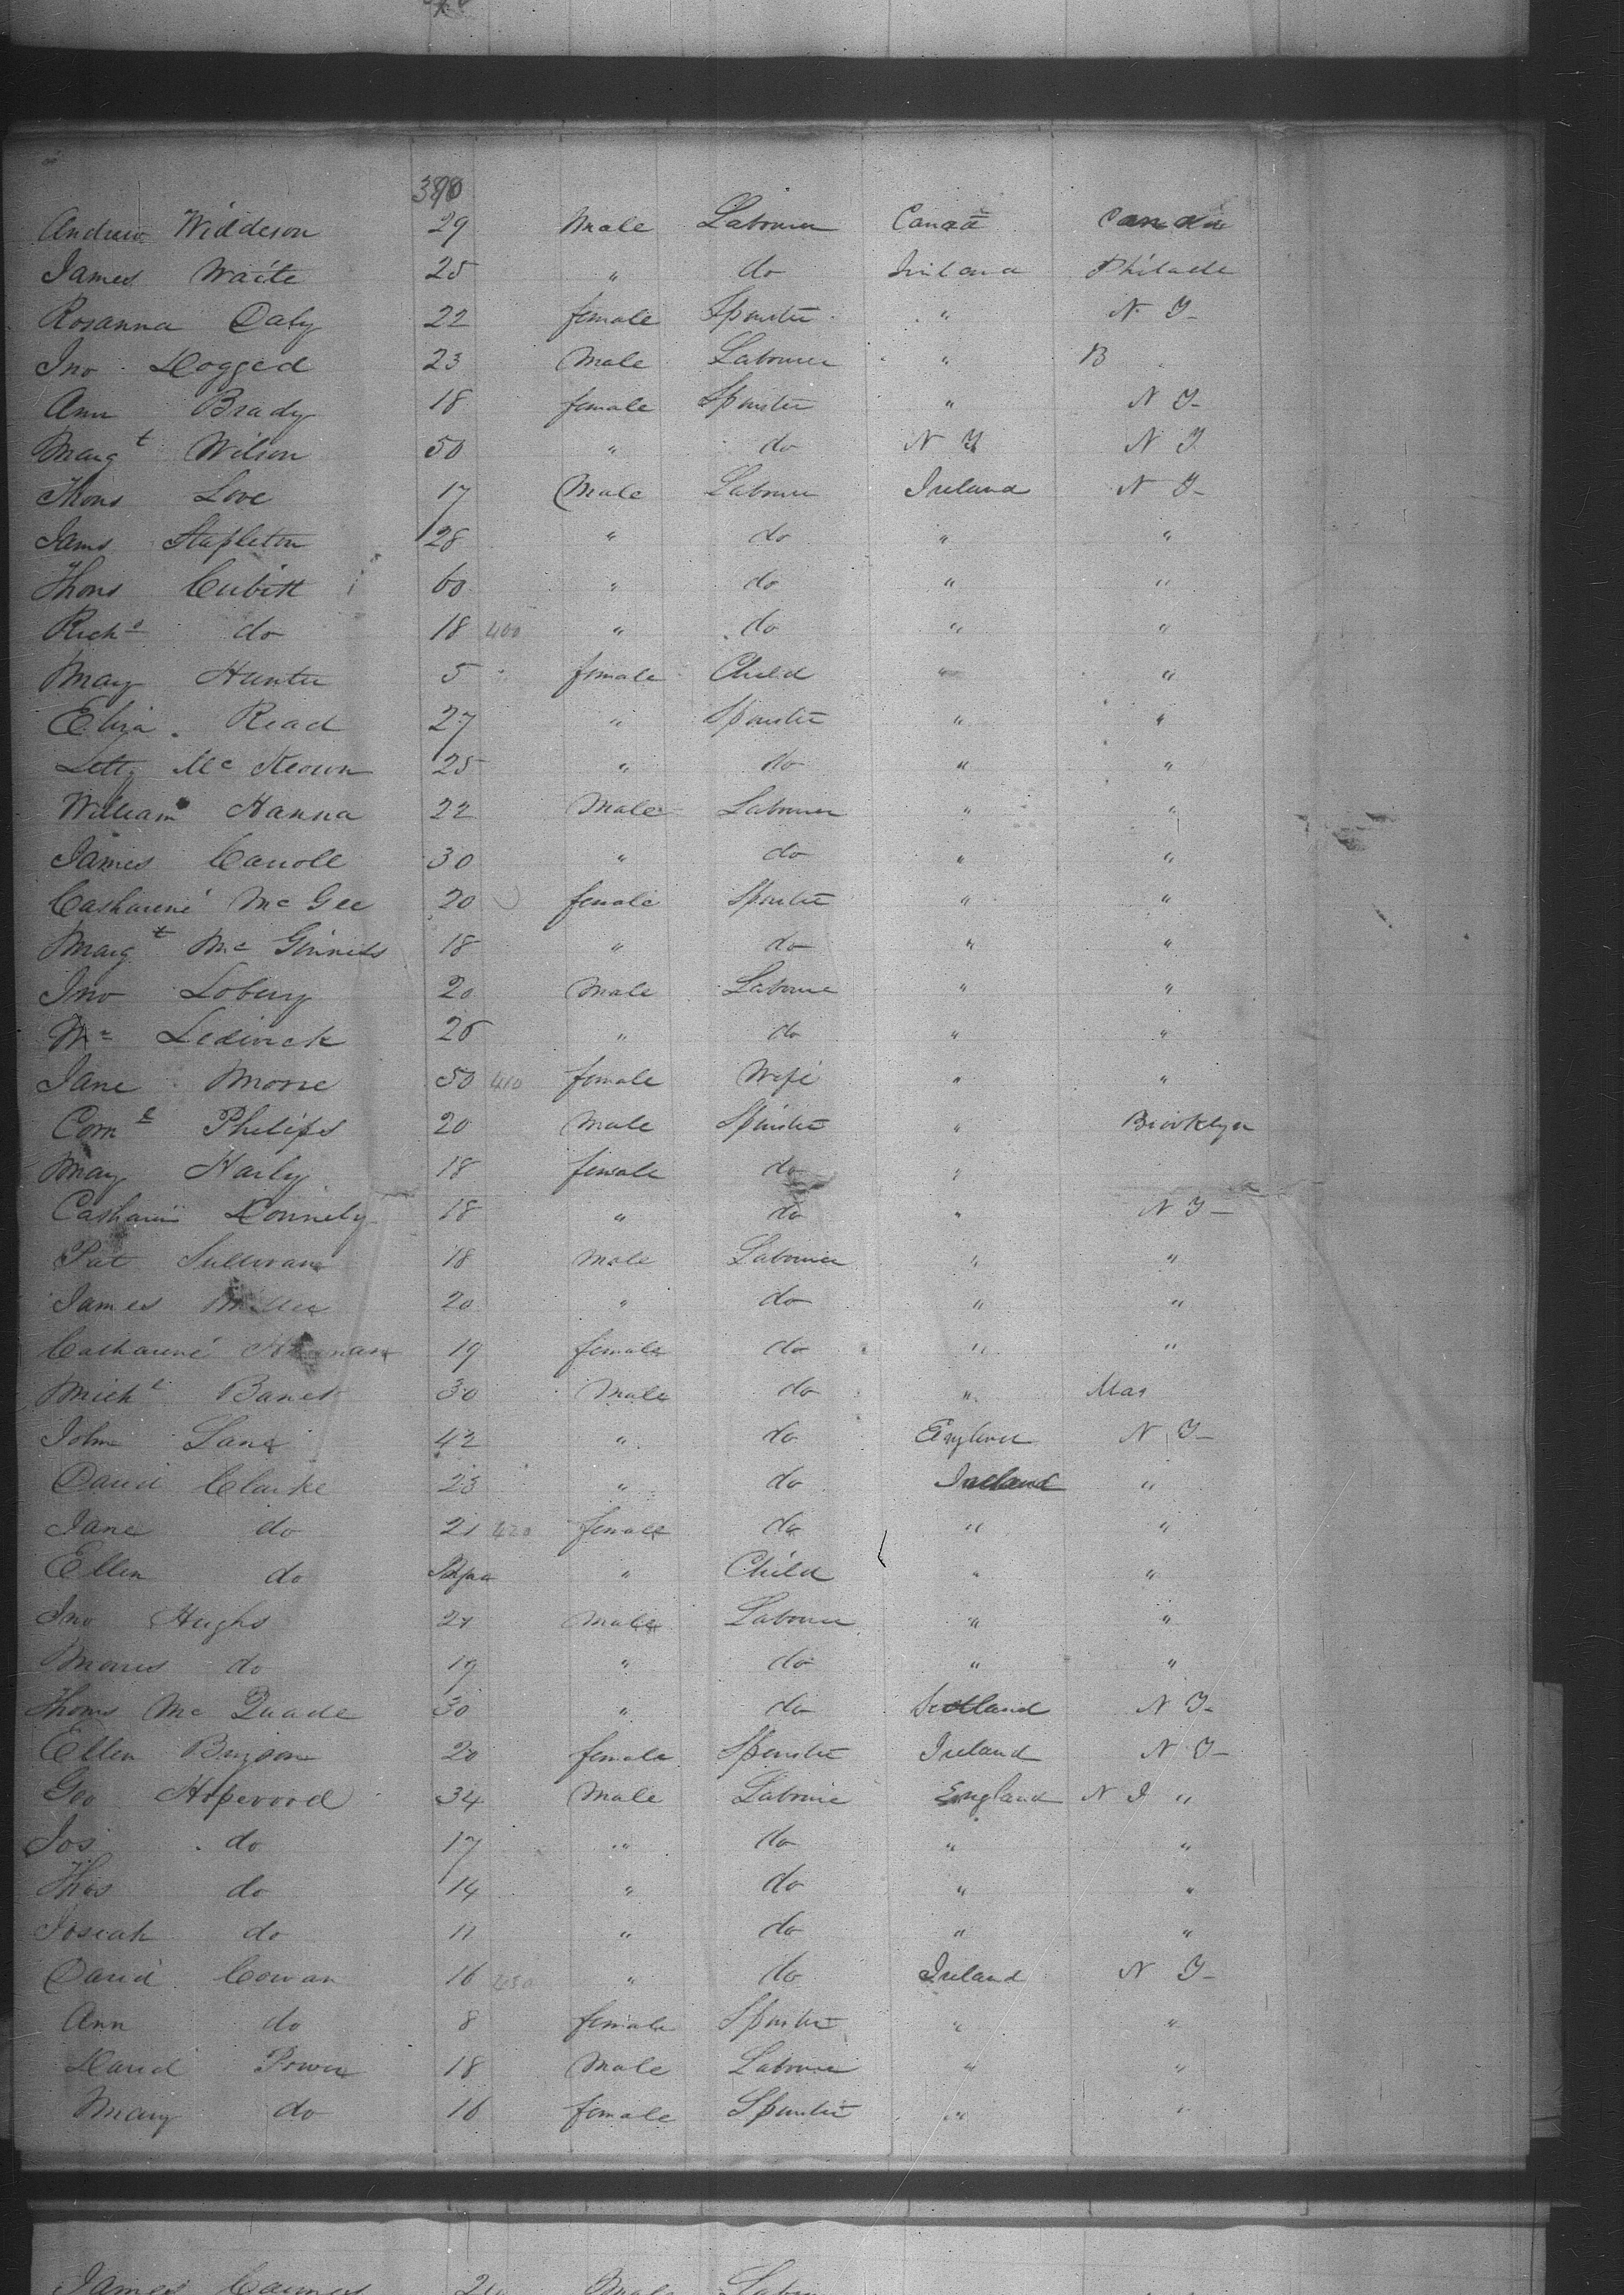 390
Andrew Widdeson 29 Male Labourer Canada Canada
James Waite 25 " do Ireland Philade
Rosanna Daly 22 female Spinster " N Y
Jno Dogged 23 Male Labourer " B
Ann Brady 18 female Spinster " N Y
Margt Wilson 50 " do N Y N Y
Thoms Love 17 Male Labourer Ireland N Y
Jams Stapleton 28 " do " "
Thoms Cubitt 60 " do " "
Richd do 18 400 " do " "
Mary Hunter 5 female Child " "
Eliza Read 27 " Spinster " "
Letty Mc Keown 25 " do " "
William Hanna 22 Male Labourer " "
James Carroll 30 " do " "
Catharine Mc Gee 20 female Spinster " "
Margt Mc Ginness 18 " do " "
Jno Lobery 20 Male Labourer " "
Wm Ledwick 25 " do " "
Jane Morre 50 410 female Wife " "
Corns Philips 20 Male Spinster " Brooklyn
Mary Harly 18 female do "
Catharine Donnely 18 " do " N Y
Pat Sullivan 18 Male Labourer " "
James Miller 20 " do " "
Catharine 19 female do " "
Michl Banet 30 Male do " Mas
John Lane 42 " do England N Y
David Clarke 23 " do Ireland "
Jane do 21 420 female do " "
Ellen do " Child " "
Jno Hughs 21 Male Labourer " "
Morris do 19 " do " "
Thoms Mc Quade 30 " do Scotland N Y
Ellen Bryson 20 female Spinster Ireland N Y
Geo Hopwood 34 Male Labourer England N J "
Jos do 17 " do " "
Thos do 14 " do " "
Josiah do 11 " do " "
David Cowan 16 430 " do Ireland N Y
Ann do 8 female Spinster " "
David Power 18 Male Labourer " "
Mary do 16 female Spinster " "
James Male